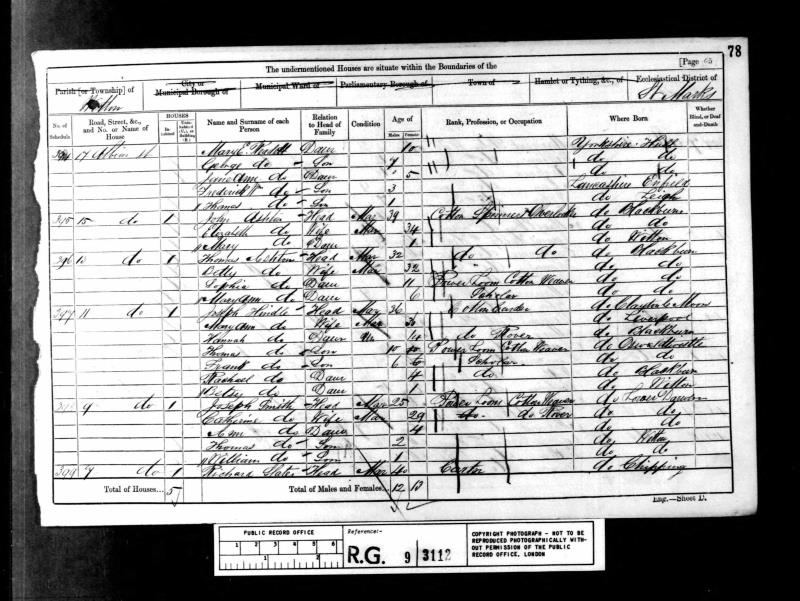 78
The undermentioned Houses are situate within the Boundaries of the
[Page 65]
Parish [or Township] of
Witton
City or Municipal Borough of
Municipal Ward of
Parliamentary Borough of
Town of
Hamlet or Tything, &c., of
Ecclesiastical District of
St Marks
No. of Schedule
Road, Street, &c., and No. or Name of House
HOUSES
Inhabited
Uninhabited (U.), or Building (B.)
Name and Surname of each Person
Relation to Head of Family
Condition
Age of
Males
Females
Rank, Profession, or Occupation
Where Born
Whether Blind, or Deaf-and-Dumb
17 Albion St Daur 10 Yorkshire
George do Son 7 do do
Daur 5 do do
Frederick W do Son 3 Lancashire Enfield
Thomas do Son 1 do Leigh
395 15 do 1 John Ashton Head Mar 39 Cotton Spinner Overlooker do Blackburn
Elizabeth do Wife Mar 34 do do
Mary do Daur 1 do Witton
396 13 do 1 Thomas Ashton Head Mar 32 do do do Blackburn
Betty do Wife Mar 32 do do
Sophia do Daur 11 Power Loom Cotton Weaver do do
Mary Ann do Daur 6 Scholar do do
397 11 do 1 Joseph Hindle Head Mar 36 Cotton do Clayton le Moors
Mary Ann do Wife Mar 36 do Liverpool
Hannah do Daur Un 14 do Wover do Blackburn
Thomas do Son 10 Power Loom Cotton Weaver do Oswaldtwistle
Frank do Son 6 Scholar do do
Rachael do Daur 4 do do Blackburn
Betsy do Daur do Witton
398 9 do 1 Joseph Smith Head Mar 25 Power Loom Cotton Weaver do Lower Darwen
Catherine do Wife Mar 29 do do Wover do do
Ann do Daur 4 do do
Thomas do Son 2 do Witton
William do Son 1 do do
399 7 do 1 Richard Slater Head Mar 40 Carter do Chipping
Total of Houses... 5
Total of Males and Females... 12 13
Eng.—Sheet D.
PUBLIC RECORD OFFICE
1 2 3 4 5 6
1 2
Reference:-
R.G. 9 3112
COPYRIGHT PHOTOGRAPH - NOT TO BE
REPRODUCED PHOTOGRAPHICALLY WITH-
OUT PERMISSION OF THE PUBLIC
RECORD OFFICE, LONDON